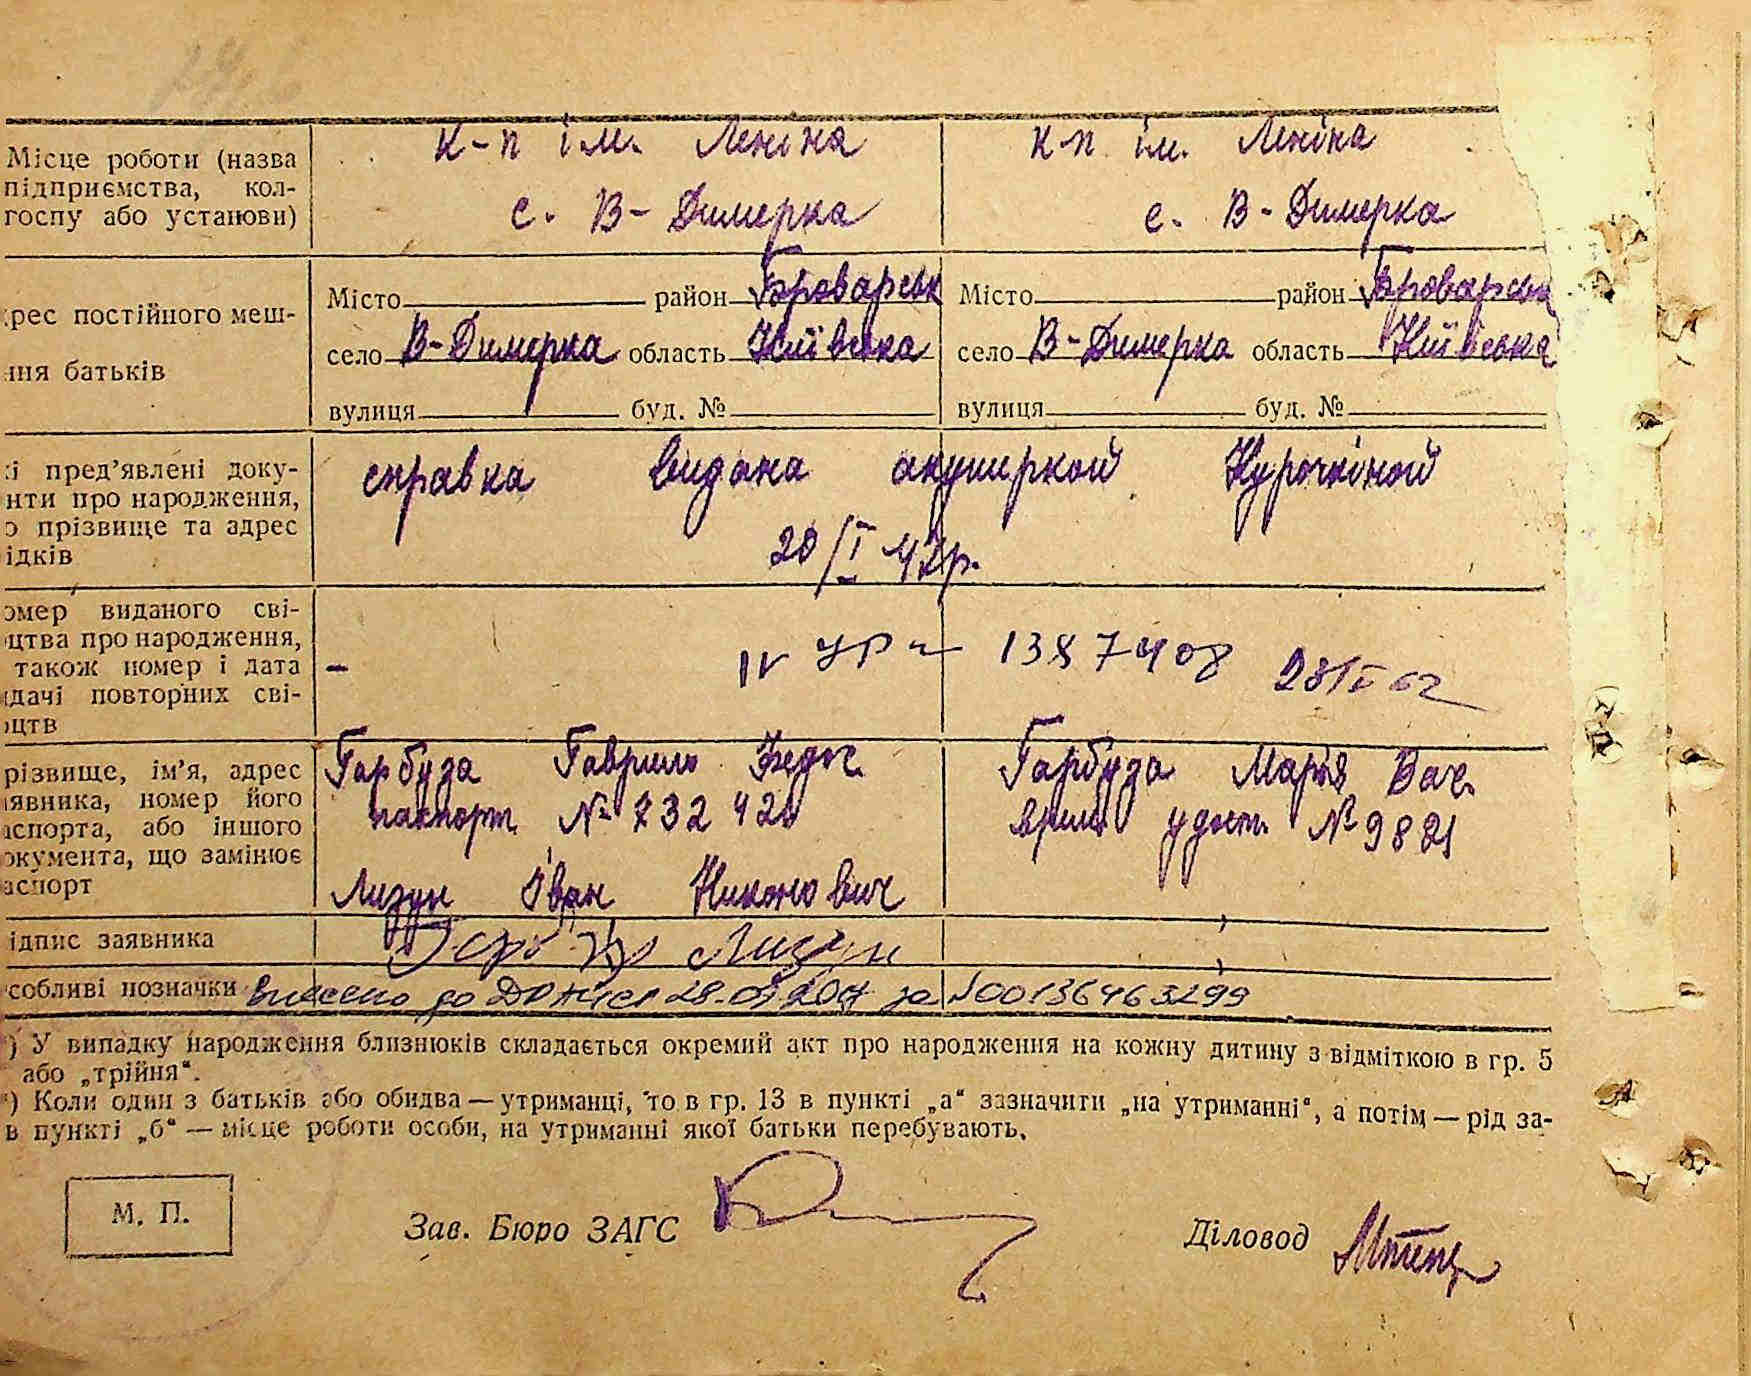 к-п ім. Леніна к-п ім. Леніна
Місце роботи (назва
підприємства, кол-
госпу або установи)
с. В-Димерка с. В-Димерка
Місто район Броварськ Місто район Броварськ
рес постійного меш-
село В-Димерка область Київська село В-Димерка область Київська
ня батьків
вулиця буд. № вулиця буд. №
і пред’явлені доку-
нти про народження,
о прізвище та адрес
ідків
справка видана акушеркой Курочкіной
20/I 42р.
омер виданого сві-
цтва про народження,
також номер і дата
дачі повторних сві-
цтв
– IV УР 1387408
різвище, ім’я, адрес
явника, номер його
аспорта, або іншого
окумента, що замінює
аспорт
Гарбуза Гаврило Федос. Гарбуза Марія Вас.
паспорт № 732420 врем. удост. № 9821
Лизун Іван Никонович
ідпис заявника
Лизун
собливі позначки внесено до 28. за №00136463299
) У випадку народження близнюків складається окремий акт про народження на кожну дитину з відміткою в гр. 5
або „трійня“.
) Коли один з батьків або обидва — утриманці, то в гр. 13 в пункті „а“ зазначити „на утриманні“, а потім — рід за-
в пункті „б“ — місце роботи особи, на утриманні якої батьки перебувають.
М. П.
Зав. Бюро ЗАГС Діловод